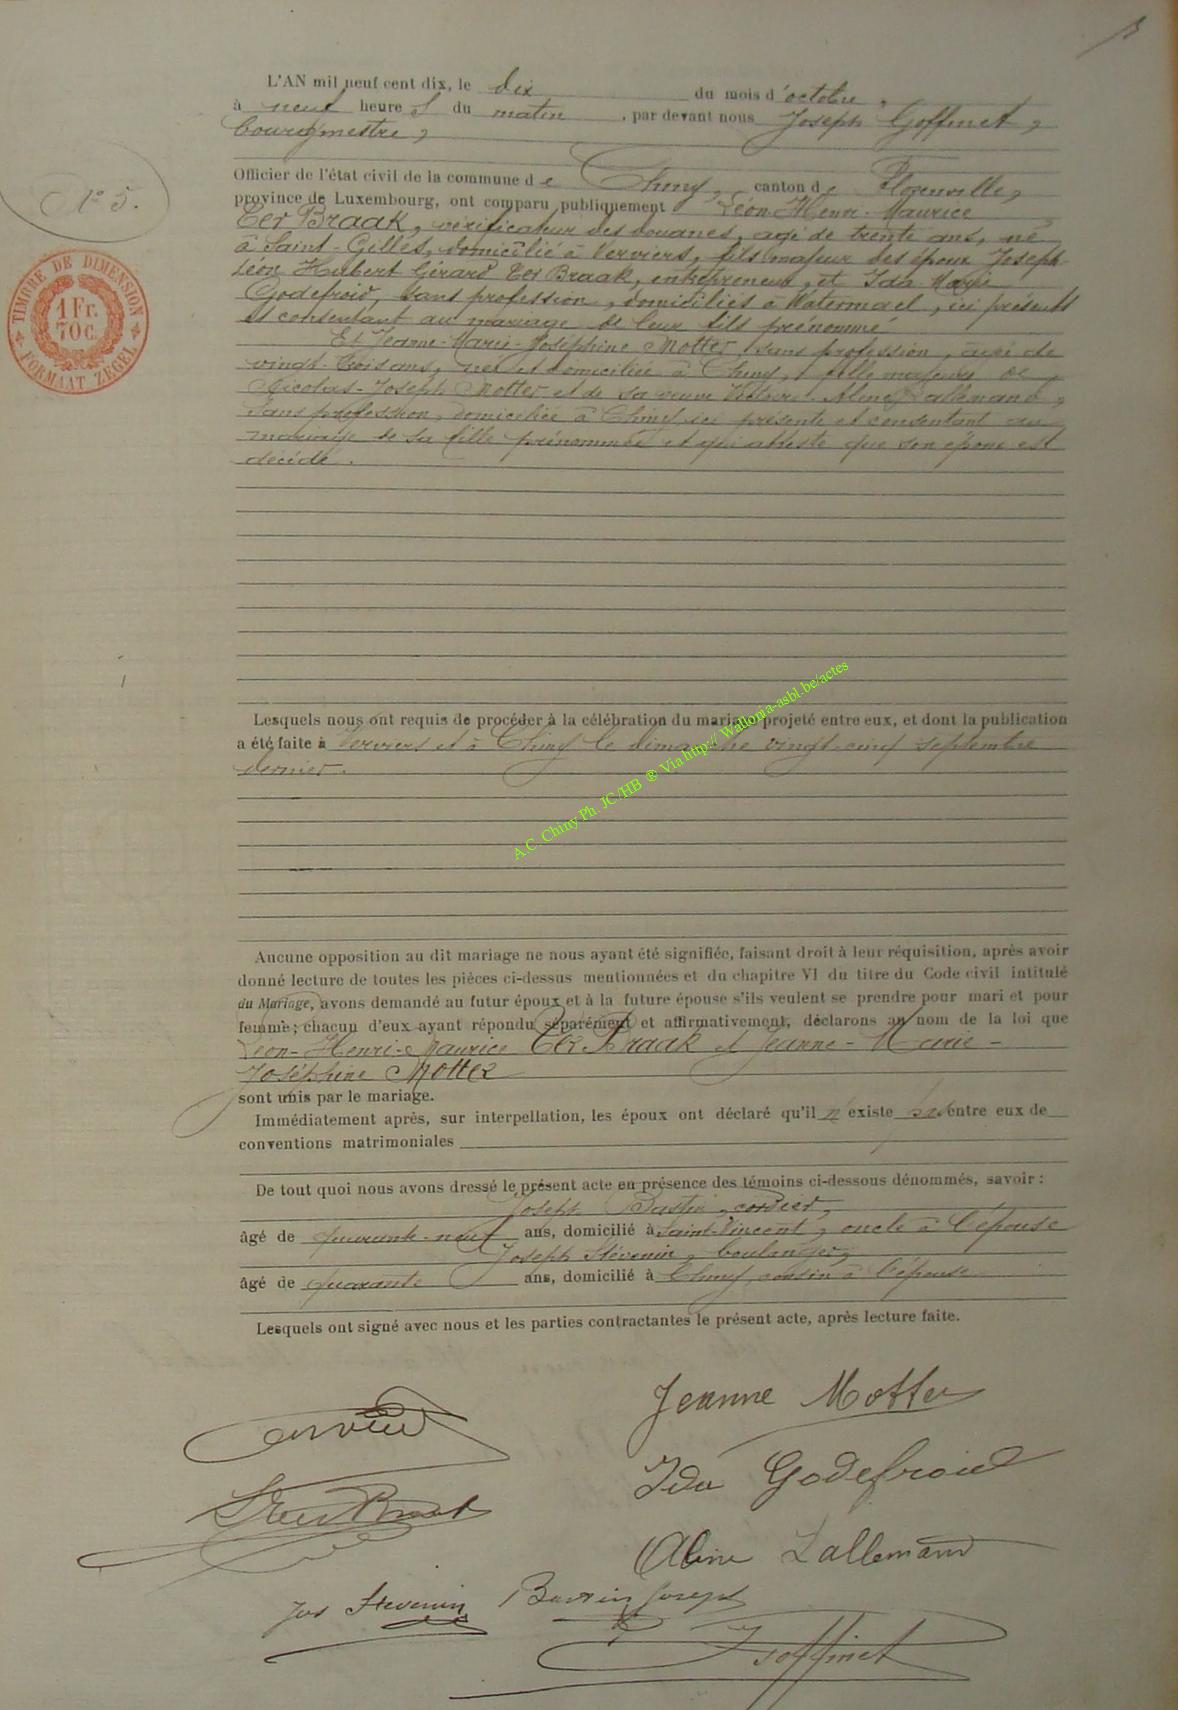 L'AN mil neuf cent dix, le dix du mois d'octobre,
à neuf heure s du matin, par devant nous Joseph Goffinet,
bourgmestre,
Officier de l'état civil de la commune de Chiny, canton de Florenville,
province de Luxembourg, ont comparu publiquement Léon-Henri-Maurice
Ter Braak, vérificateur des douanes, agé de trente ans, né
à Saint-Gilles, domicilié à Verviers, fils majeur des époux Joseph-
Léon Hubert Gérard Ter Braak, entrepreneur, et Ida Marie
Godefroid, sans profession, domiciliés à Watermael, ici présents
et consentant au mariage de leur fils prénommé
Et Jeanne-Marie-Joséphine Motter, sans profession, agée de
vingt-trois ans, née et domiciliée à Chiny, fille majeure de
Nicolas-Joseph Motter et de sa veuve Aline Lallemand,
sans profession, domiciliée à Chiny, ici présente et consentant au
mariage de sa fille prénommée et qui atteste que son époux est
décédé.
N° 5.
TIMBRE DE DIMENSION
1 Fr.
70 c.
FORMAAT ZEGEL
Lesquels nous ont requis de procéder à la célébration du mariage projeté entre eux, et dont la publication
a été faite à Verviers et à Chiny le dimanche vingt-cinq septembre
dernier.
A.C. Chiny Ph. JC/HB ® Via http:// Wallonia-asbl.be/actes
Aucune opposition au dit mariage ne nous ayant été signifiée, faisant droit à leur réquisition, après avoir
donné lecture de toutes les pièces ci-dessus mentionnées et du chapitre VI du titre du Code civil intitulé
du Mariage, avons demandé au futur époux et à la future épouse s'ils veulent se prendre pour mari et pour
femme; chacun d'eux ayant répondu séparément et affirmativement, déclarons au nom de la loi que
Léon-Henri-Maurice Ter Braak et Jeanne-Marie-
Joséphine Motter
sont unis par le mariage.
Immédiatement après, sur interpellation, les époux ont déclaré qu'il n'existe pas entre eux de
conventions matrimoniales
De tout quoi nous avons dressé le présent acte en présence des témoins ci-dessous dénommés, savoir:
Joseph Bastin, cordier,
âgé de quarante-neuf ans, domicilié à Saint-Vincent, oncle à l'épouse
Joseph Stévenin, boulanger,
âgé de quarante ans, domicilié à Chiny, cousin à l'épouse
Lesquels ont signé avec nous et les parties contractantes le présent acte, après lecture faite.
Jeanne Motter
Ida Godefroid
Ter Braak
Aline Lallemand
Jos Stevenin Bastin Joseph
J Goffinet